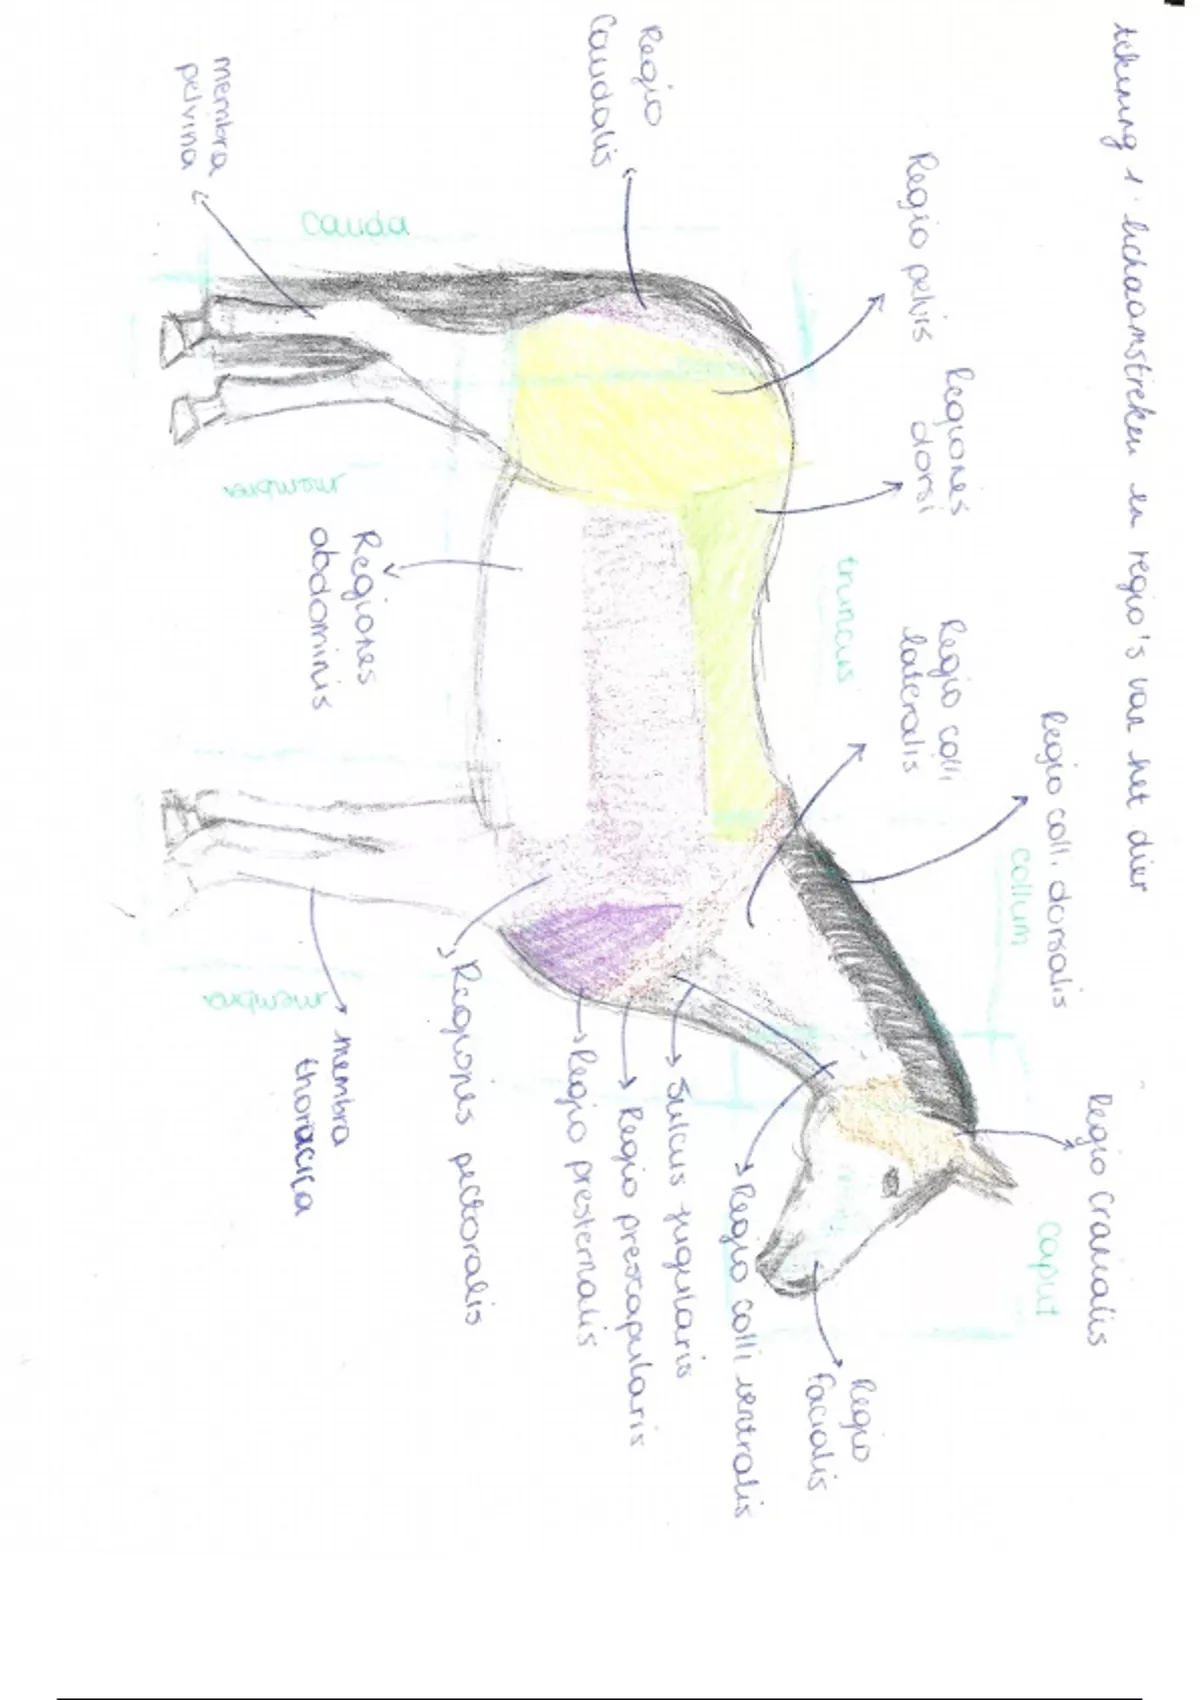 tekening 1: lichaamstreken en regio's van het dier
Regio colli dorsalis
Regio cranialis
collum
caput
Regio pelvis
Regiones
dorsi
Regio colli
lateralis
truncus
Regio
caudalis
Regio
facialis
Regio colli ventralis
Sulcus jugularis
Regio prescapularis
Regio presternalis
Regiones pectoralis
cauda
membra
pelvina
membra
Regiones
abdominis
membra
membra
thoracica